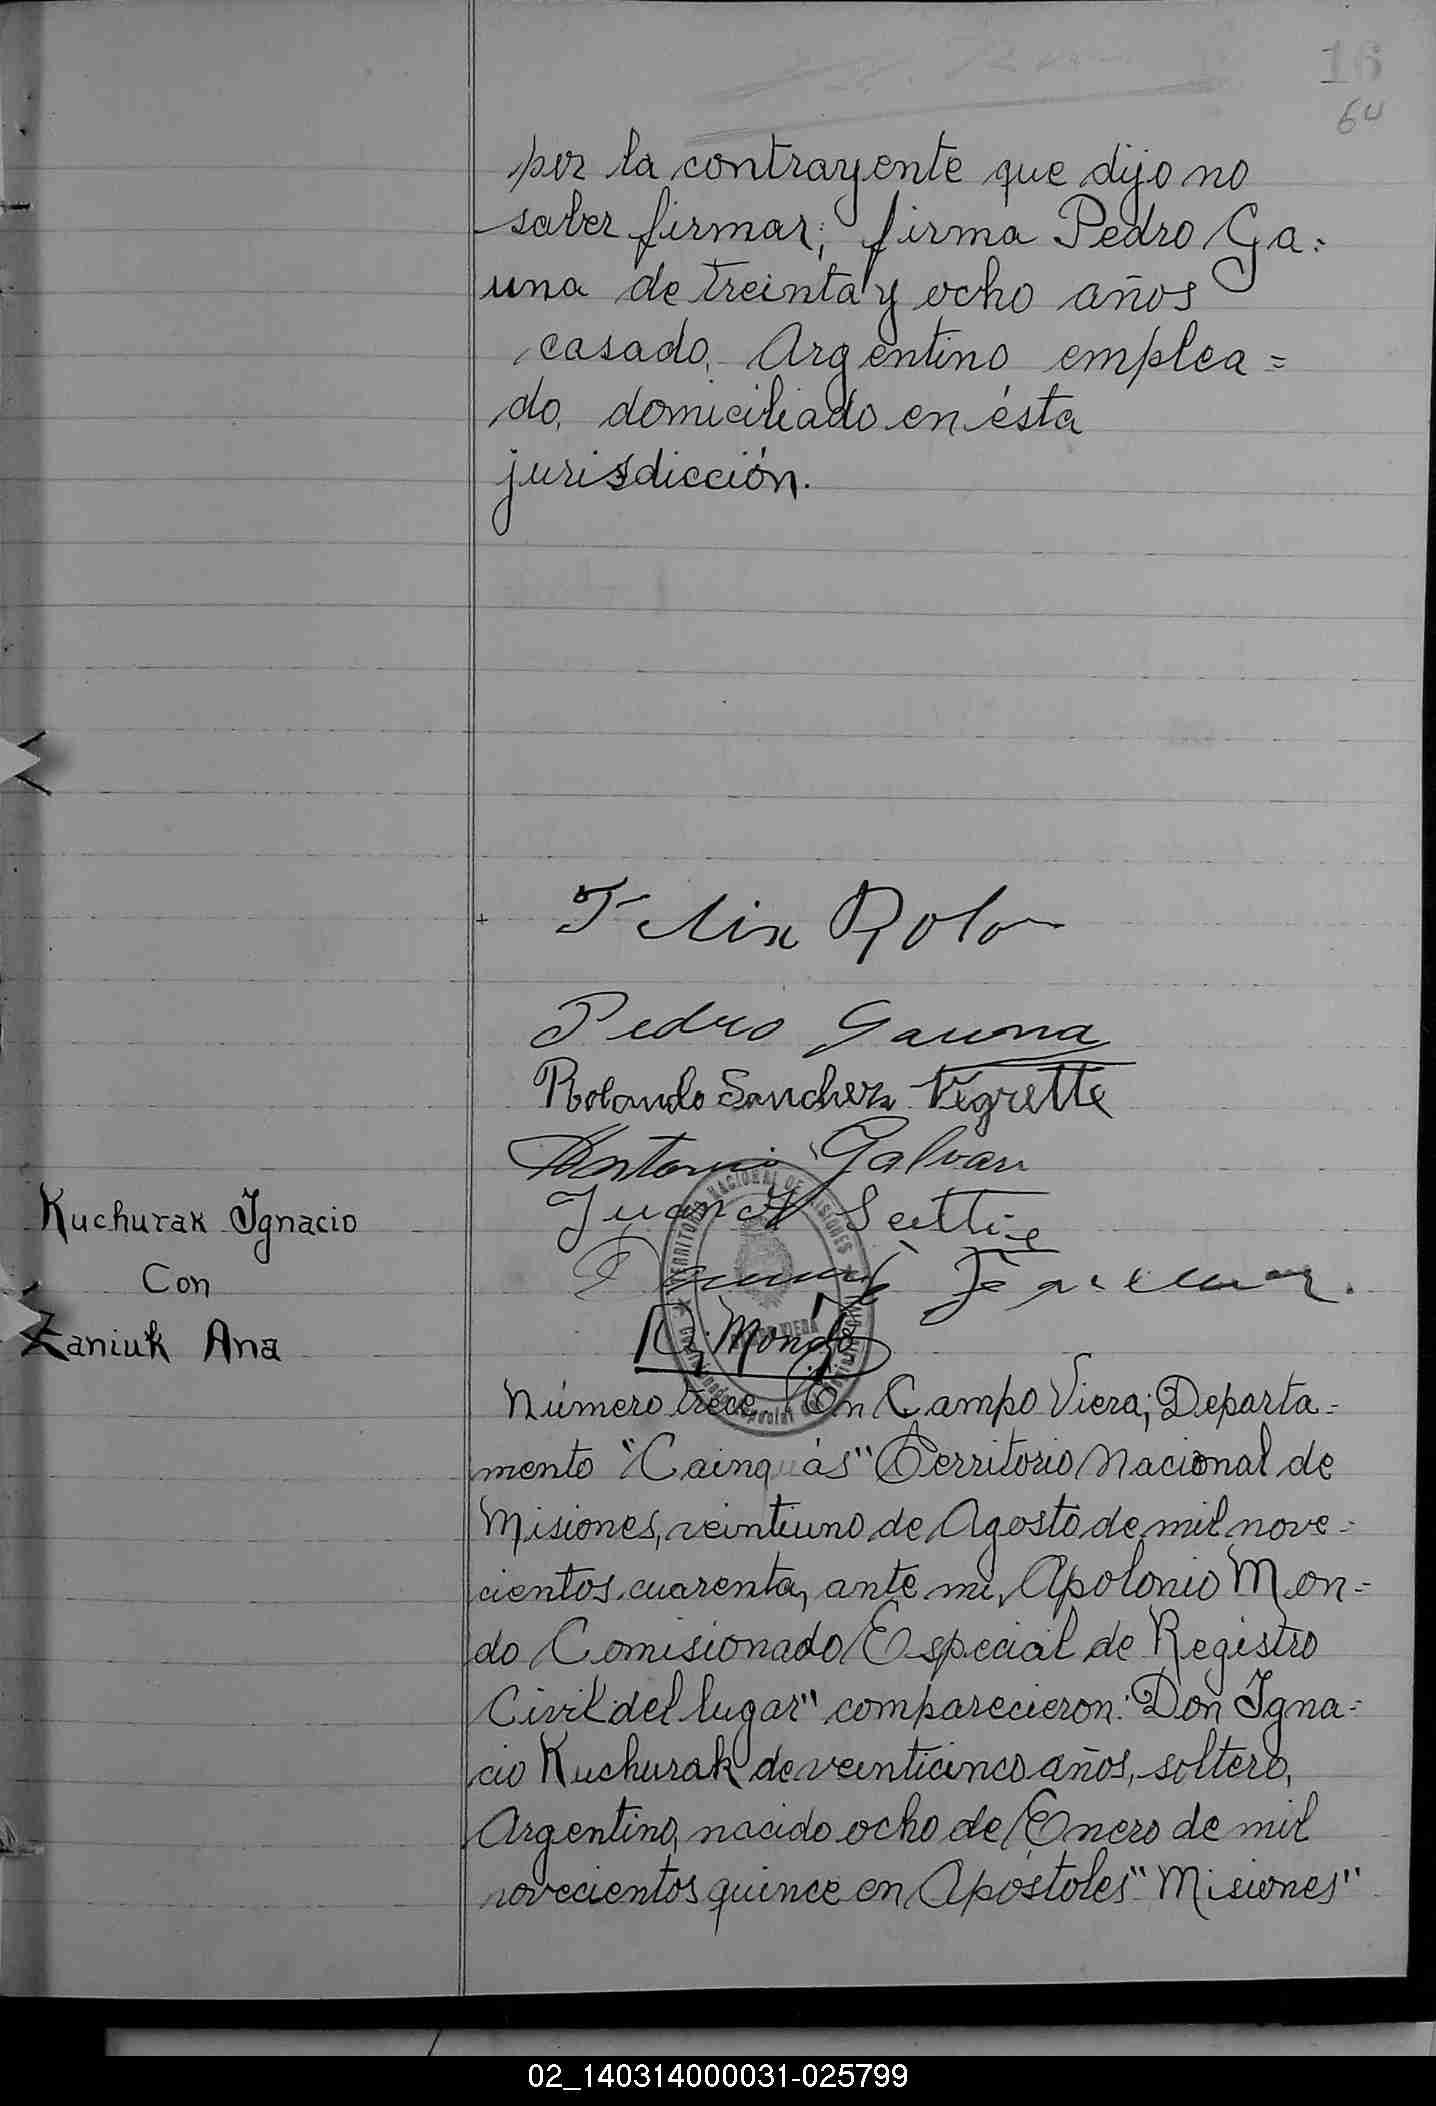 16
64
por la contrayente que dijo no
saber firmar; firma Pedro Ga=
una de treinta y ocho años
casado, Argentino emplea=
do, domiciliado en ésta
jurisdicción.
Felix Rolo
Pedro Gauna
Rolando Sanchez Negrette
Antonio Galvan
Juan
TERRITORIO NACIONAL DE MISIONES
A. Mondo
Kuchurak Ignacio
Con
Zaniuk Ana
Número trece. En Campo Viera; Departa=
mento "Cainguás" Territorio Nacional de
Misiones, veintiuno de Agosto de mil nove=
cientos cuarenta, ante mi, Apolonio Mon=
do Comisionado Especial de Registro
Civil del lugar" comparecieron: Don Igna=
cio Kuchurak de veinticinco años, soltero,
Argentino, nacido ocho de Enero de mil
novecientos quince en Apóstoles "Misiones"
02_140314000031-025799